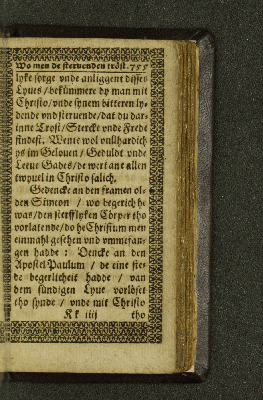 Wo men de steruenden tröst. 755
lyke sorge vnde anliggent disses
Lyues / bekümmere dy man mit
Christo / vnde synem bitterem ly-
dende vnd steruende / dat du dar-
inne Trost / Stercke vnde Frede
findest. Wente wol vullhardich
ys im Gelouen / Geduldt vnde
Leeue Gades / de wert ane allen
twyuel in Christo salich.
Gedencke an den framen ol-
den Simeon / wo begerich he
was / den sterfflyken Cörper tho
vorlatende / do he Christum men
einmahl gesehen vnd vmmefan-
gen hadde : Dencke an den
Apostel Paulum / de eine ste-
de begerlicheit hadde / van
dem sündigen Lyue vorlöset
tho synde / vnde mit Christo
Kk iiij tho